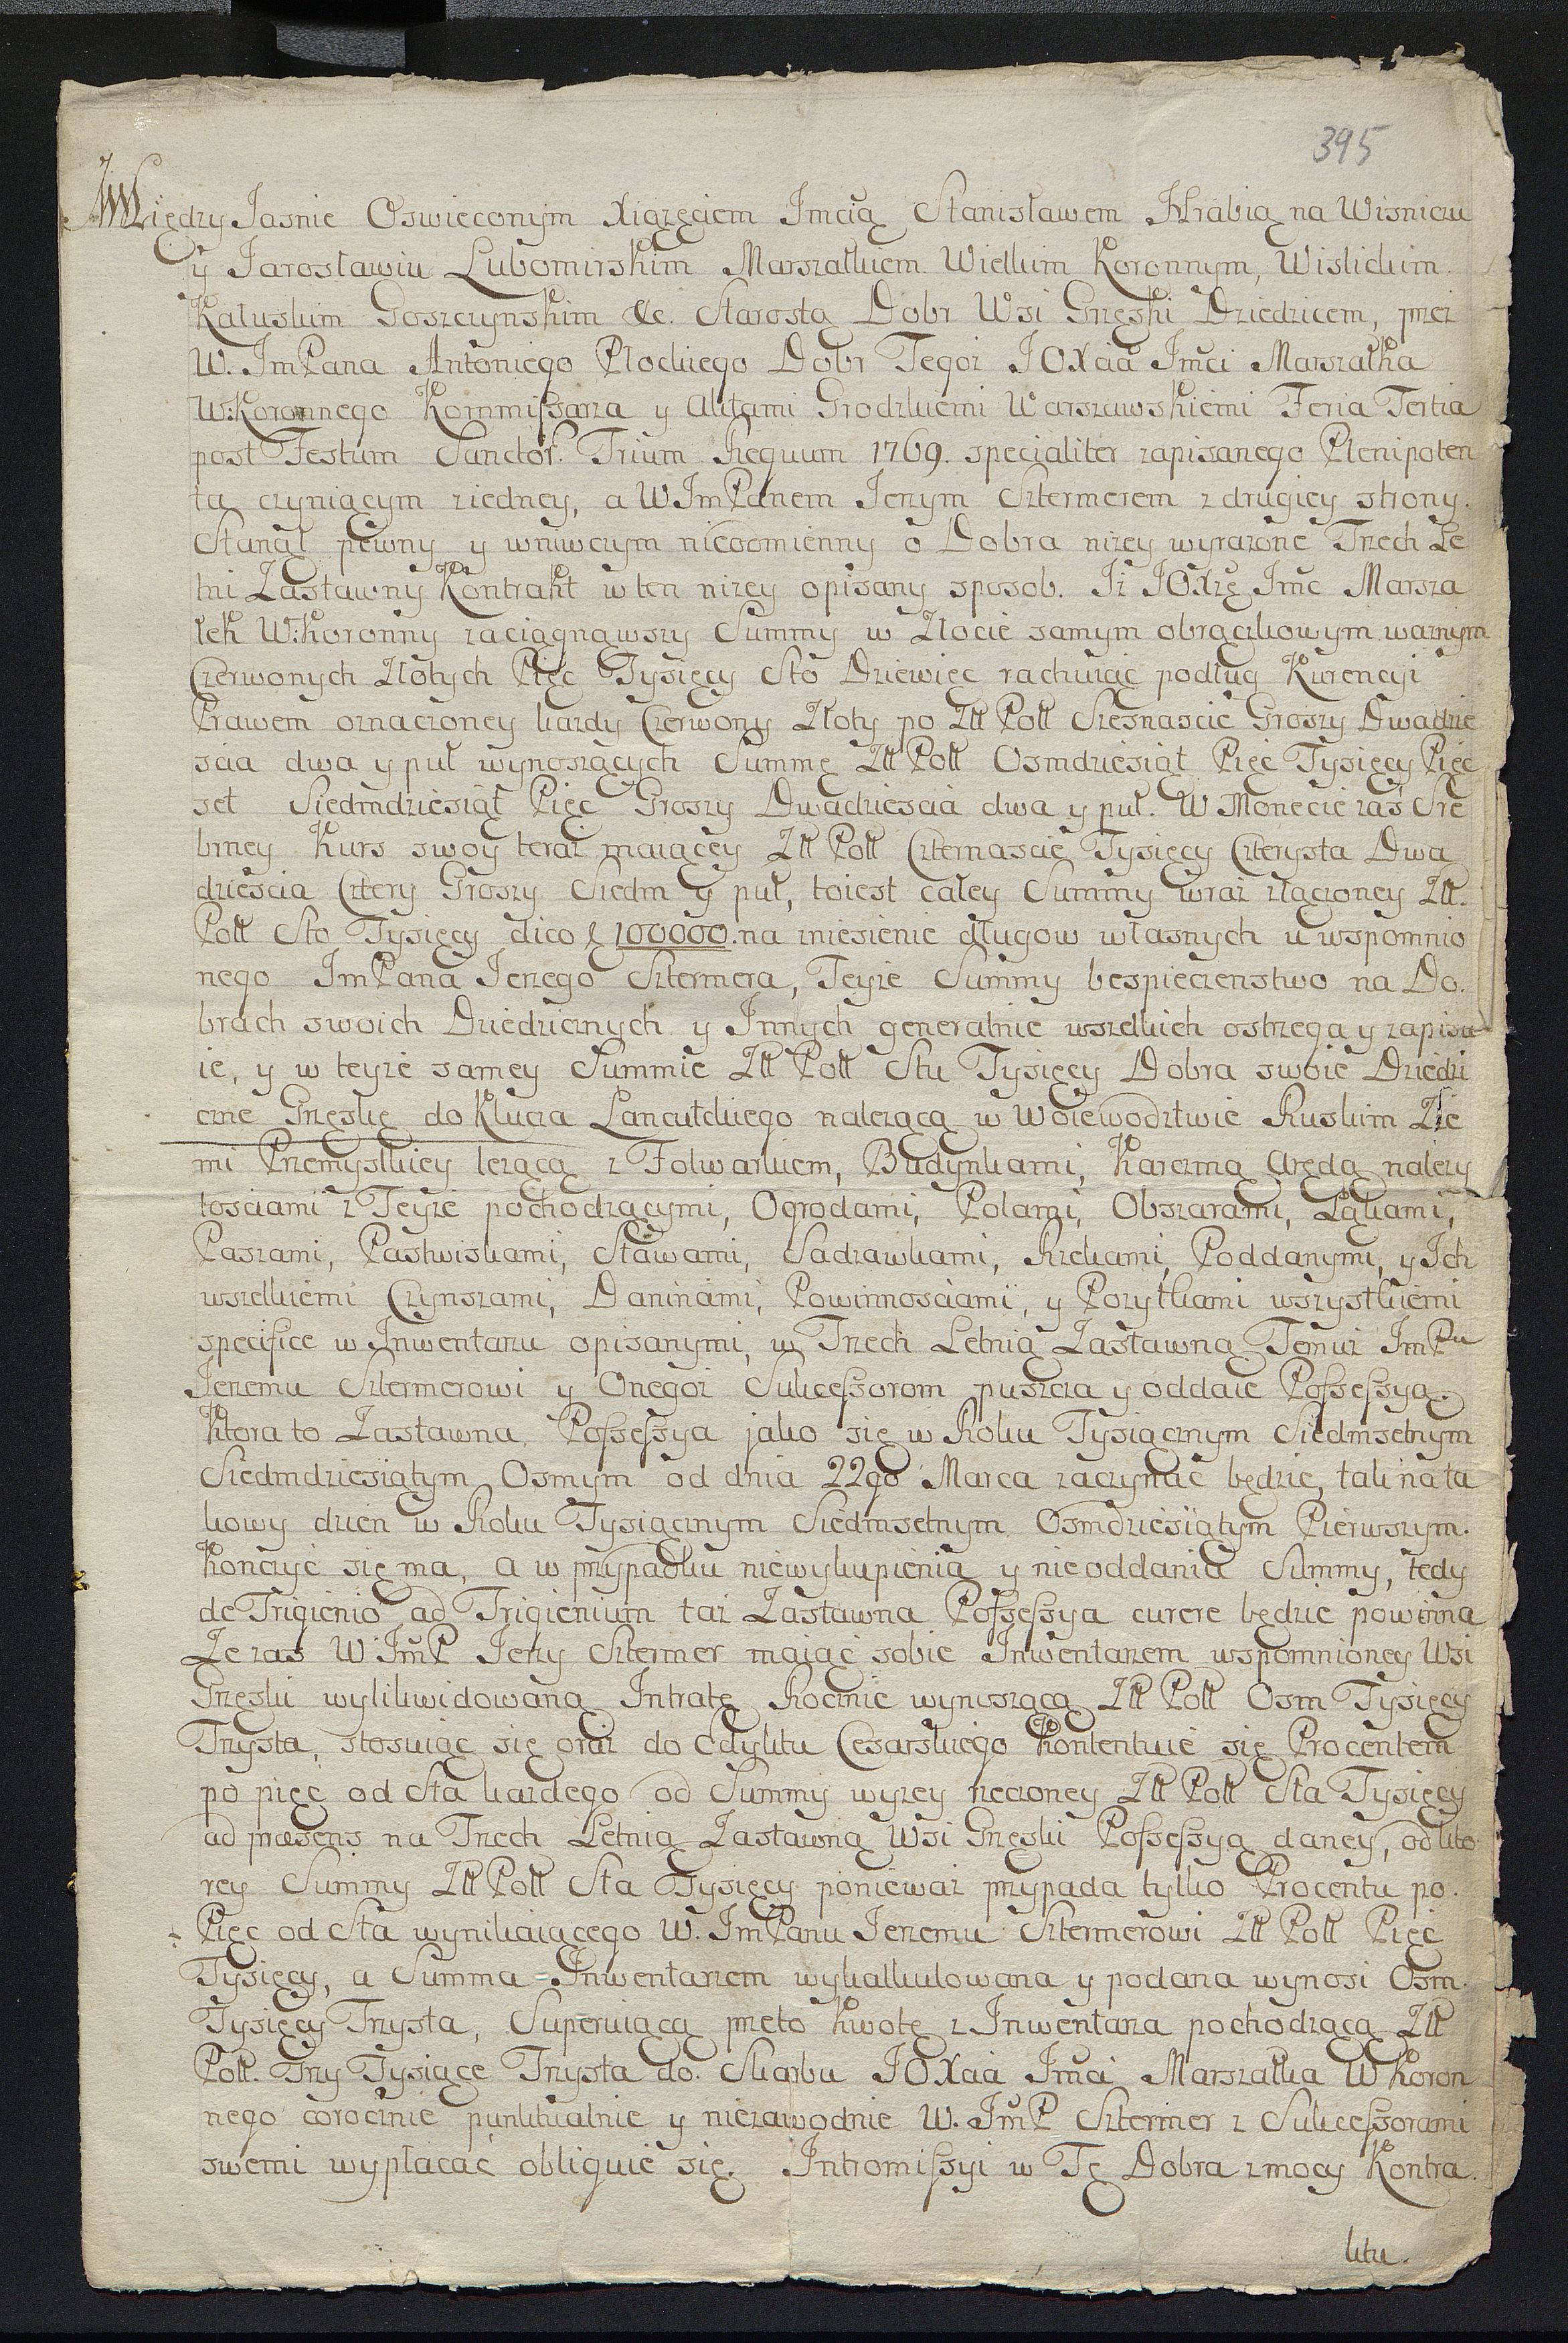 395
Między Jasnie Oswieconym Xiązęciem Jmcią Stanisławem Hrabią na Wisniczu
y Jarosławiu Lubomirskim Marszałkiem Wielkim Koronnym, Wislickim
Kałuskim Goszczynskim &c. Starostą Dobr Wsi Grzęski Dziedzicem, przez
W. JmPana Antoniego Płockiego Dobr Tegoż JOXcia Jmci Marszałka
W:Koronnego Kommissarza y Aktami Grodzkiemi Warszawskiemi Feria Tertia
post Festum Sanctor. Trium Regum 1769. specialiter zapisanego Plenipoten
ta czyniącym z iedney, a WJmPanem Jerzym Sztermerem z drugiey strony.
Stanął pewny y wniwczym nieodmienny o Dobra niżey wyrażone Trzech Le
tni Zastawny Kontrakt w ten niżey opisany sposob. Iż JOXżę Jmc Marsza
łek W:Koronny zaciągnąwszy Summy w Złocie samym obrączkowym ważnym
Czerwonych Złotych Pięc Tysięcy Sto Dziewięc rachuiąc podług Kurencyi
Prawem oznaczoney każdy Czerwony Złoty po Złł Poll Szesnascie Groszy Dwadzie
scia dwa y puł wynoszących Summę Złł Poll Osmdziesiąt Pięc Tysięcy Pięc
set Siedmdziesiąt Pięc Groszy Dwadziescia dwa y puł. W Monecie zaś Sre
brney Kurs swoy teraz maiącey Złł Poll Czternascie Tysięcy Czterysta Dwa
dziescia Cztery Groszy Siedm y puł, toiest całey Summy wraz złączoney Złł.
Poll Sto Tysięcy dico f 100000. na zniesienie długow własnych u wspomnio
nego JmPana Jerzego Sztermera, Teyże Summy bespieczenstwo na Do.
brach swoich Dziedzicznych y Innych generalnie wszelkich ostrzega y zapisu
ie, y w teyże samey Summie Złł Poll Stu Tysięcy Dobra swoie Dziedzi
czne Grzęskę do Klucza Lancutckiego nalezącą w Woiewodztwie Ruskim Zie
mi Przemyslkiey leżącą z Folwarkiem, Budynkami, Karczmą Arędą należy
tosciami z Teyże pochodzącymi, Ogrodami, Polami, Obszarami, Łąkami,
Paszami, Pastwiskami, Stawami, Sadzawkami, Rzekami, Poddanymi, y Ich
wszelkiemi Czynszami, Daninami, Powinnosciami, y Pozytkami wszystkiemi
specifice w Inwentarzu opisanymi, w Trzech Letnią Zastawną Temuż JmPu
Jerzemu Sztermerowi y Onegoż Sukcessorom puszcza y oddaie Possessyą.
Ktora to Zastawna Possessya jako się w Roku Tysiącznym Siedmsetnym
Siedmdziesiątym Osmym od dnia 22go Marca zaczynać będzie, tak na ta
kowy dzien w Roku Tysiącznym Siedmsetnym Osmdziesiątym Pierwszym.
Konczyć się ma, a w przypadku niewykupienia y nie oddania Summy, tedy
de Trigienio ad Trigienium taż Zastawna Possessya currere będzie powinna
Ze zas W JmP Jerzy Sztermer maiąc sobie Inwentarzem wspomnioney Wsi
Grzęski wylikwidowaną Intratę Rocznie wynoszącą Złł Poll Osm Tysięcy
Trzysta, stosuiąc się oraz do Edyktu Cesarskiego Kontentuie się Procentem
po pięć od Sta każdego od Summy wyzey rzeczoney Złł Poll Sta Tysięcy
ad præsens na Trzech Letnią Zastawną Wsi Grzęski Possessyą daney, od kto
rey Summy Złł Poll Sta Tysięcy ponieważ przypada tylko Procentu po.
Pięc od Sta wynikaiącego W. JmPanu Jerzemu Sztermerowi Złł Poll Pięć
Tysięcy, a Summa Inwentarzem wykalkulowana y podana wynosi Osm.
Tysięcy Trzysta, Superuiącą przeto Kwotę z Inwentarza pochodzącą Złł
Poll. Trzy Tysiące Trzysta do Skarbu JOXcia Jmci Marszałka W Koron
nego corocznie punktualnie y niezawodnie W. JmP Sztermer z Sukcessorami
swemi wypłacać obliguie się. Intromissyi w Tę Dobra z mocy Kontra.
ktu.